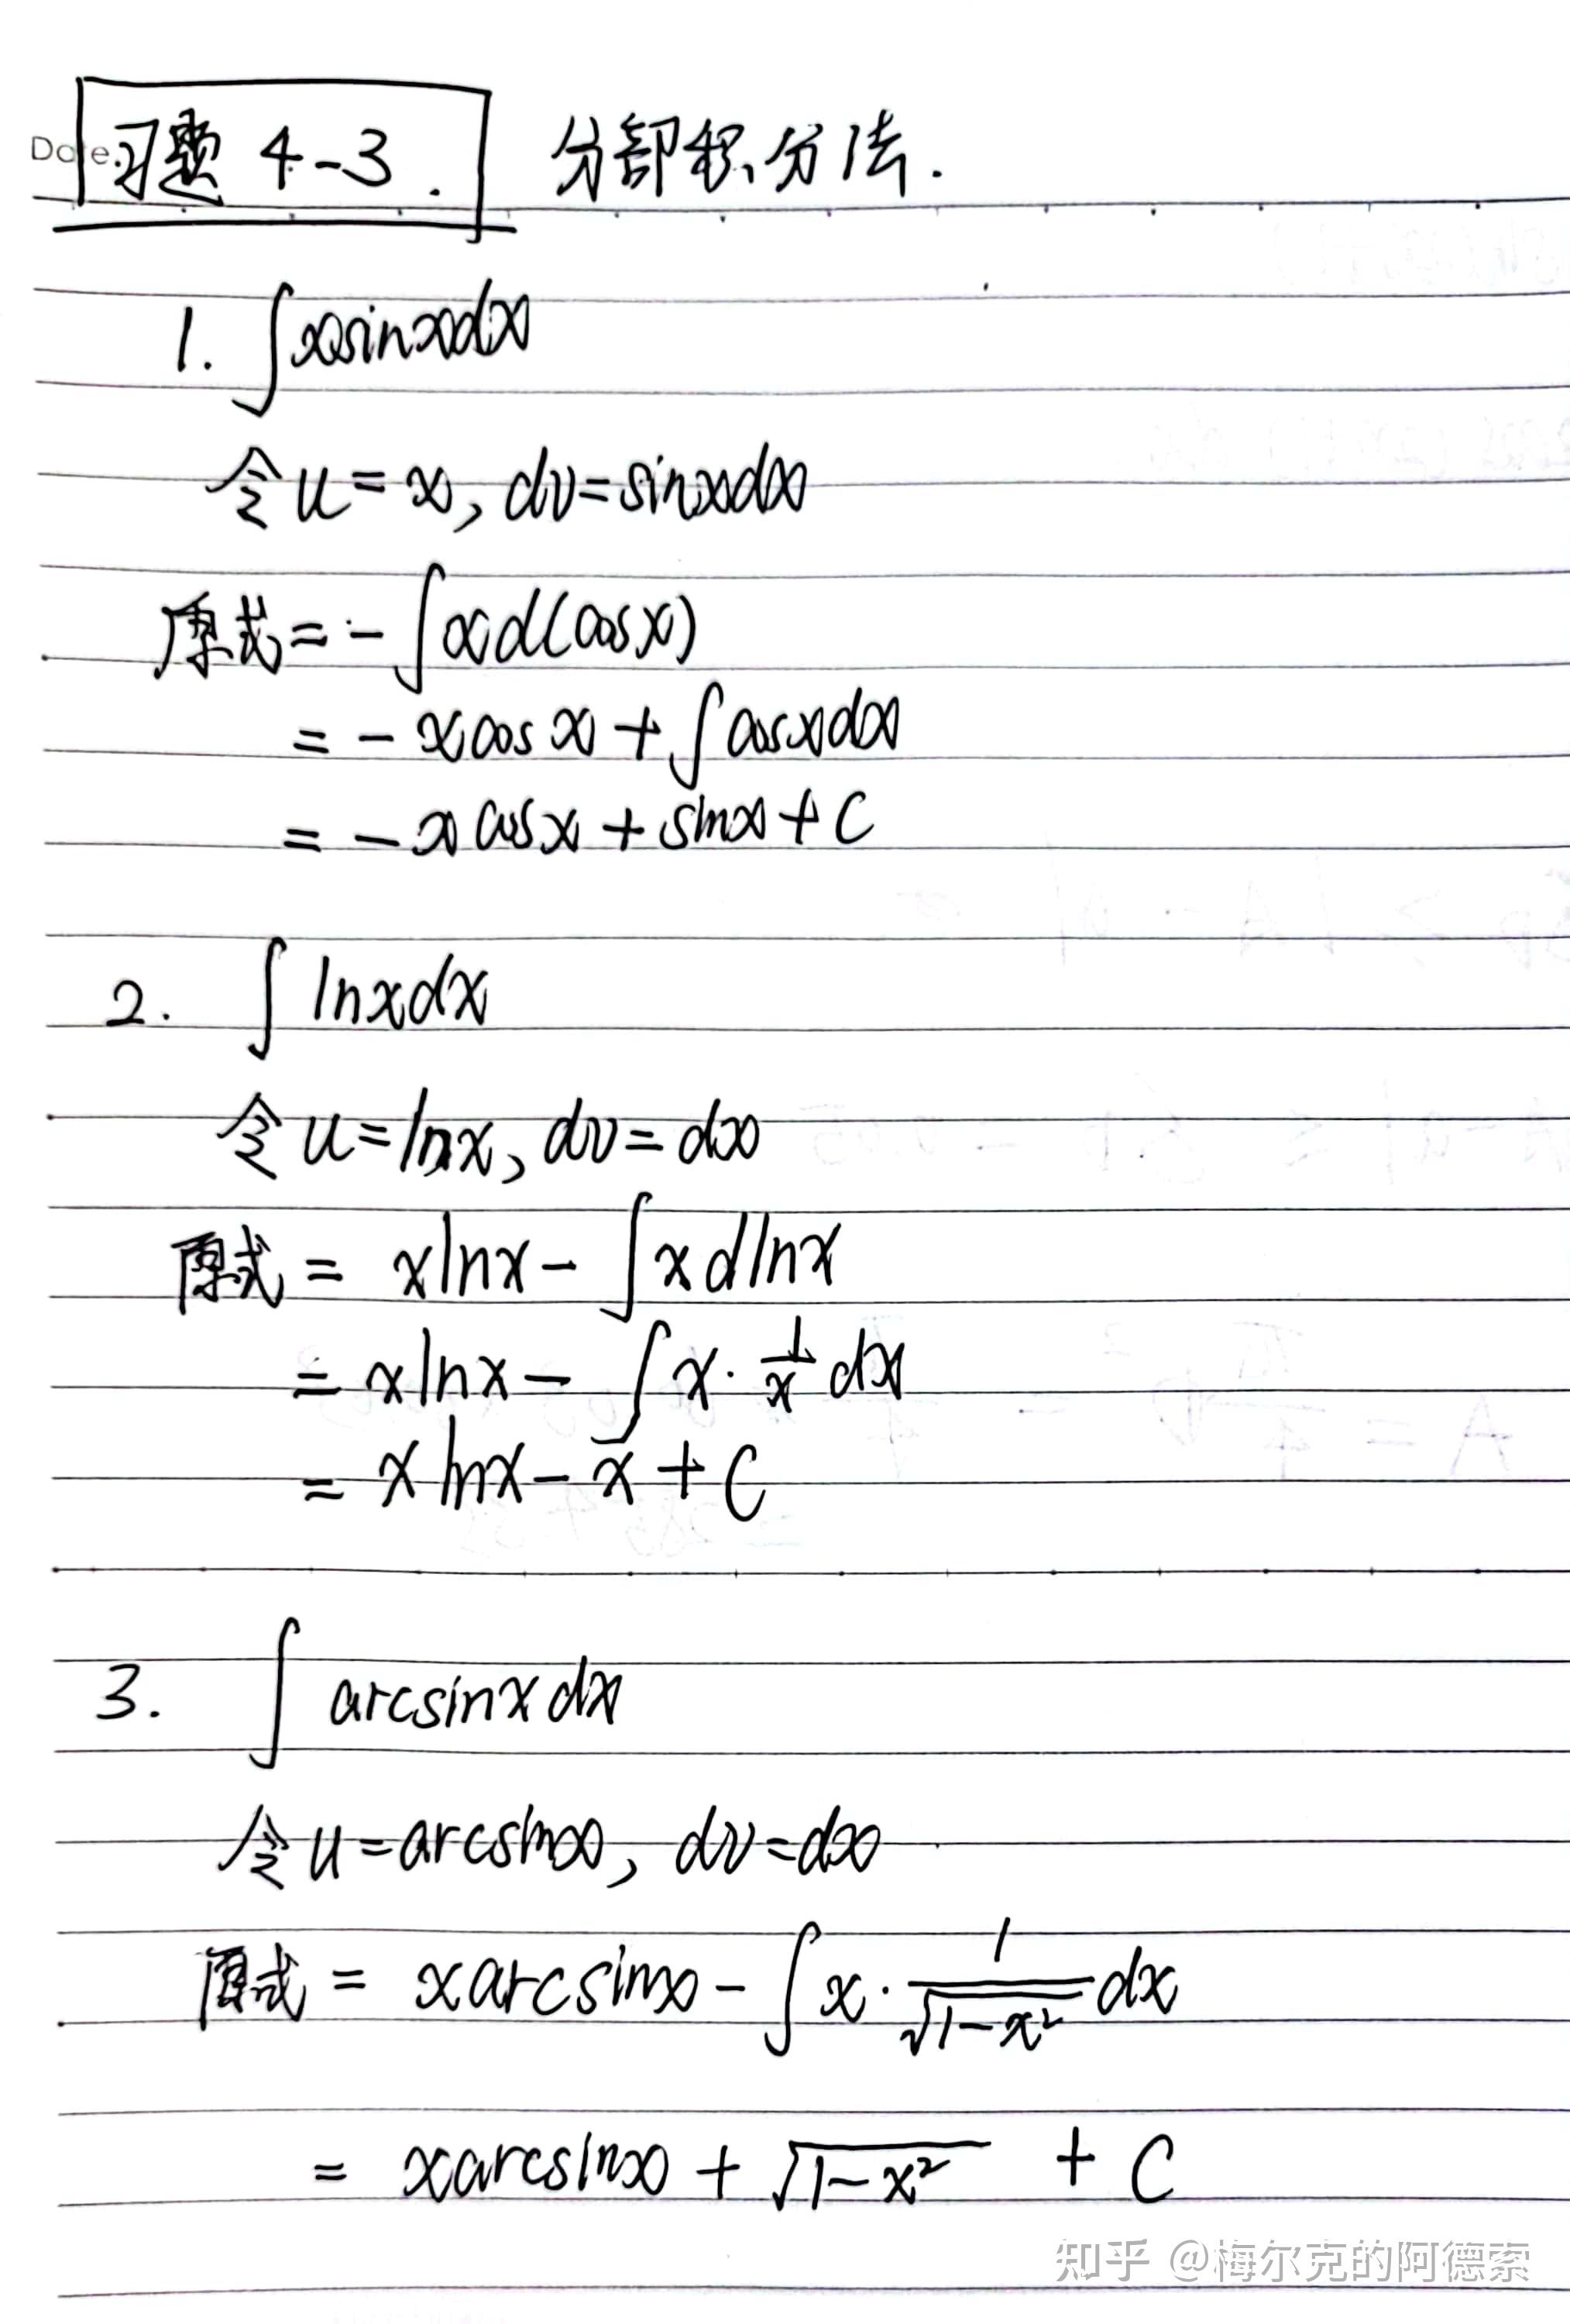 Date.
习题 4-3. 分部积分法.
1. ∫xsinxdx
令u=x, dv=sinxdx
原式=-∫xd(cosx)
=-xcosx+∫cosxdx
=-xcosx+sinx+C
2. ∫lnxdx
令u=lnx, dv=dx
原式=xlnx-∫xdlnx
=xlnx-∫x·1/x dx
=xlnx-x+C
3. ∫arcsinxdx
令u=arcsinx, dv=dx
原式=xarcsinx-∫x·1/√(1-x²) dx
=xarcsinx+√(1-x²)+C
知乎 @梅尔克的阿德索